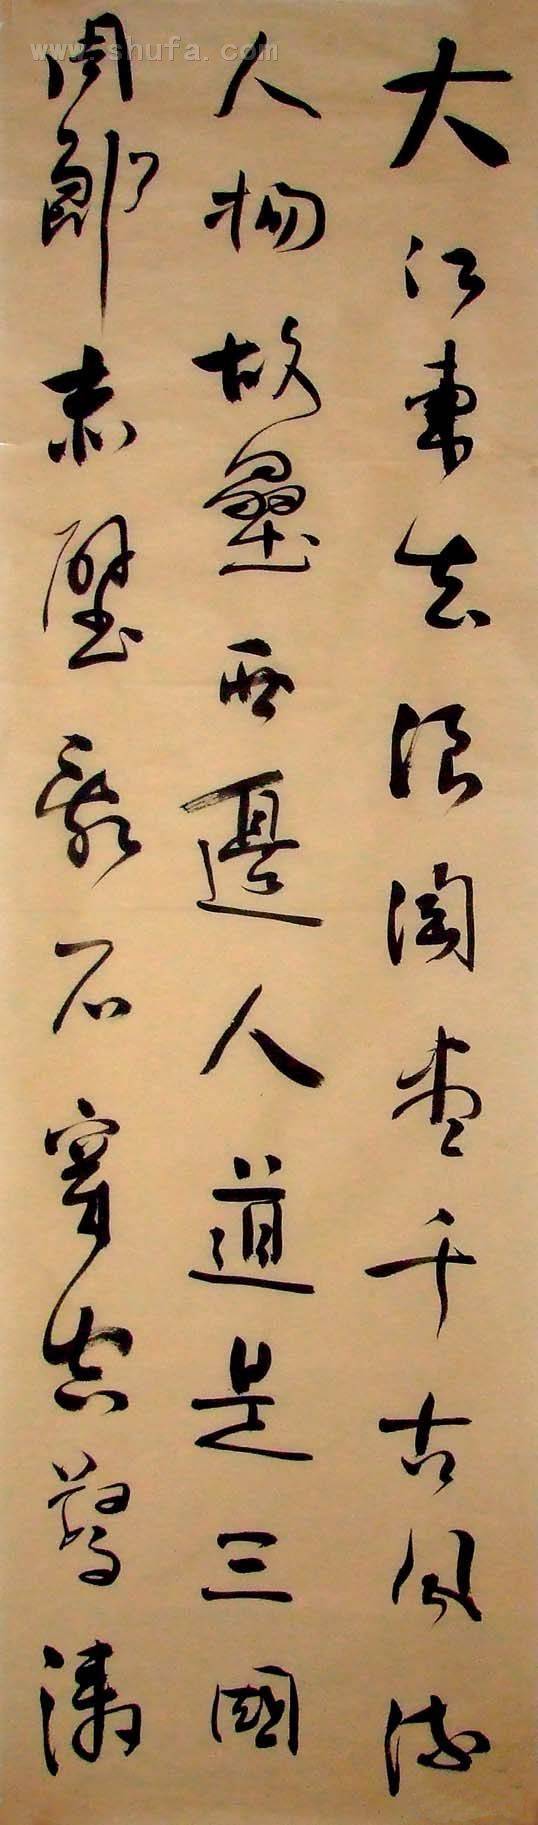 大江東去浪淘盡千古風流
人物故壘西邊人道是三國
周郎赤壁亂石穿空驚濤
www.shufa.com